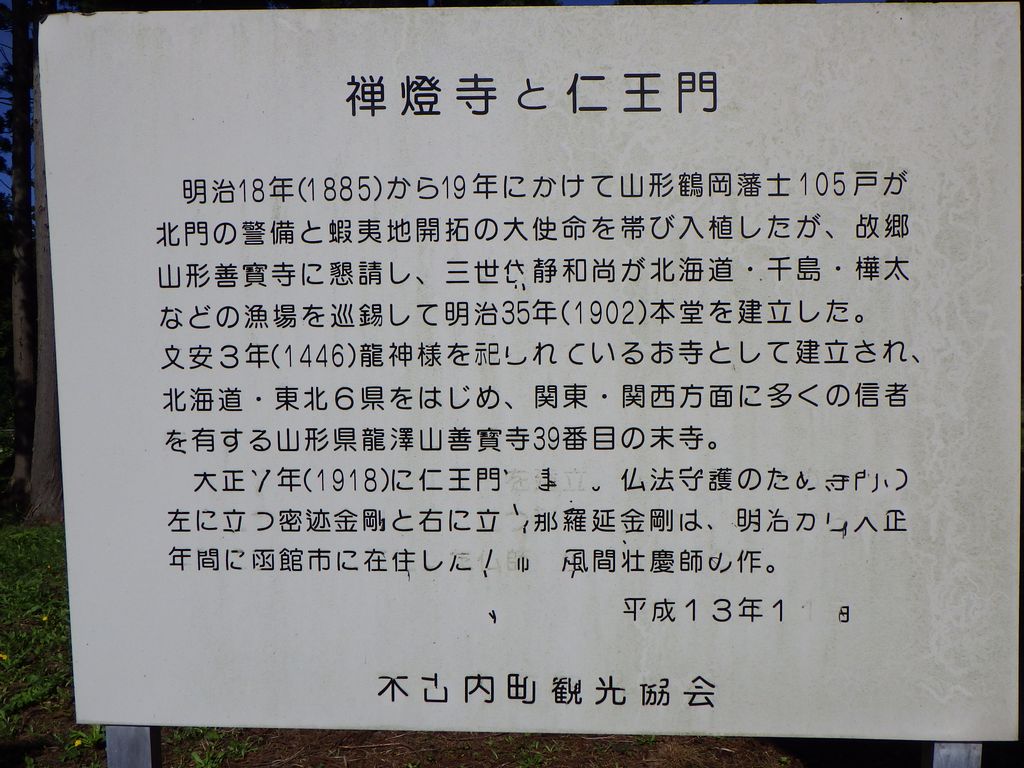 禅燈寺と仁王門
明治18年(1885)から19年にかけて山形鶴岡藩士105戸が
北門の警備と蝦夷地開拓の大使命を帯び入植したが、故郷
山形善寳寺に懇請し、三世 静和尚が北海道・千島・樺太
などの漁場を巡錫して明治35年(1902)本堂を建立した。
文安3年(1446)龍神様を祀られているお寺として建立され、
北海道・東北6県をはじめ、関東・関西方面に多くの信者
を有する山形県龍澤山善寳寺39番目の末寺。
大正 年(1918)に仁王門 仏法守護のため、寺門の
左に立つ密迹金剛と右に立つ那羅延金剛は、明治から大正
年間に函館市に在住した 風間壮慶師の作。
平成13年1
木古内町観光協会